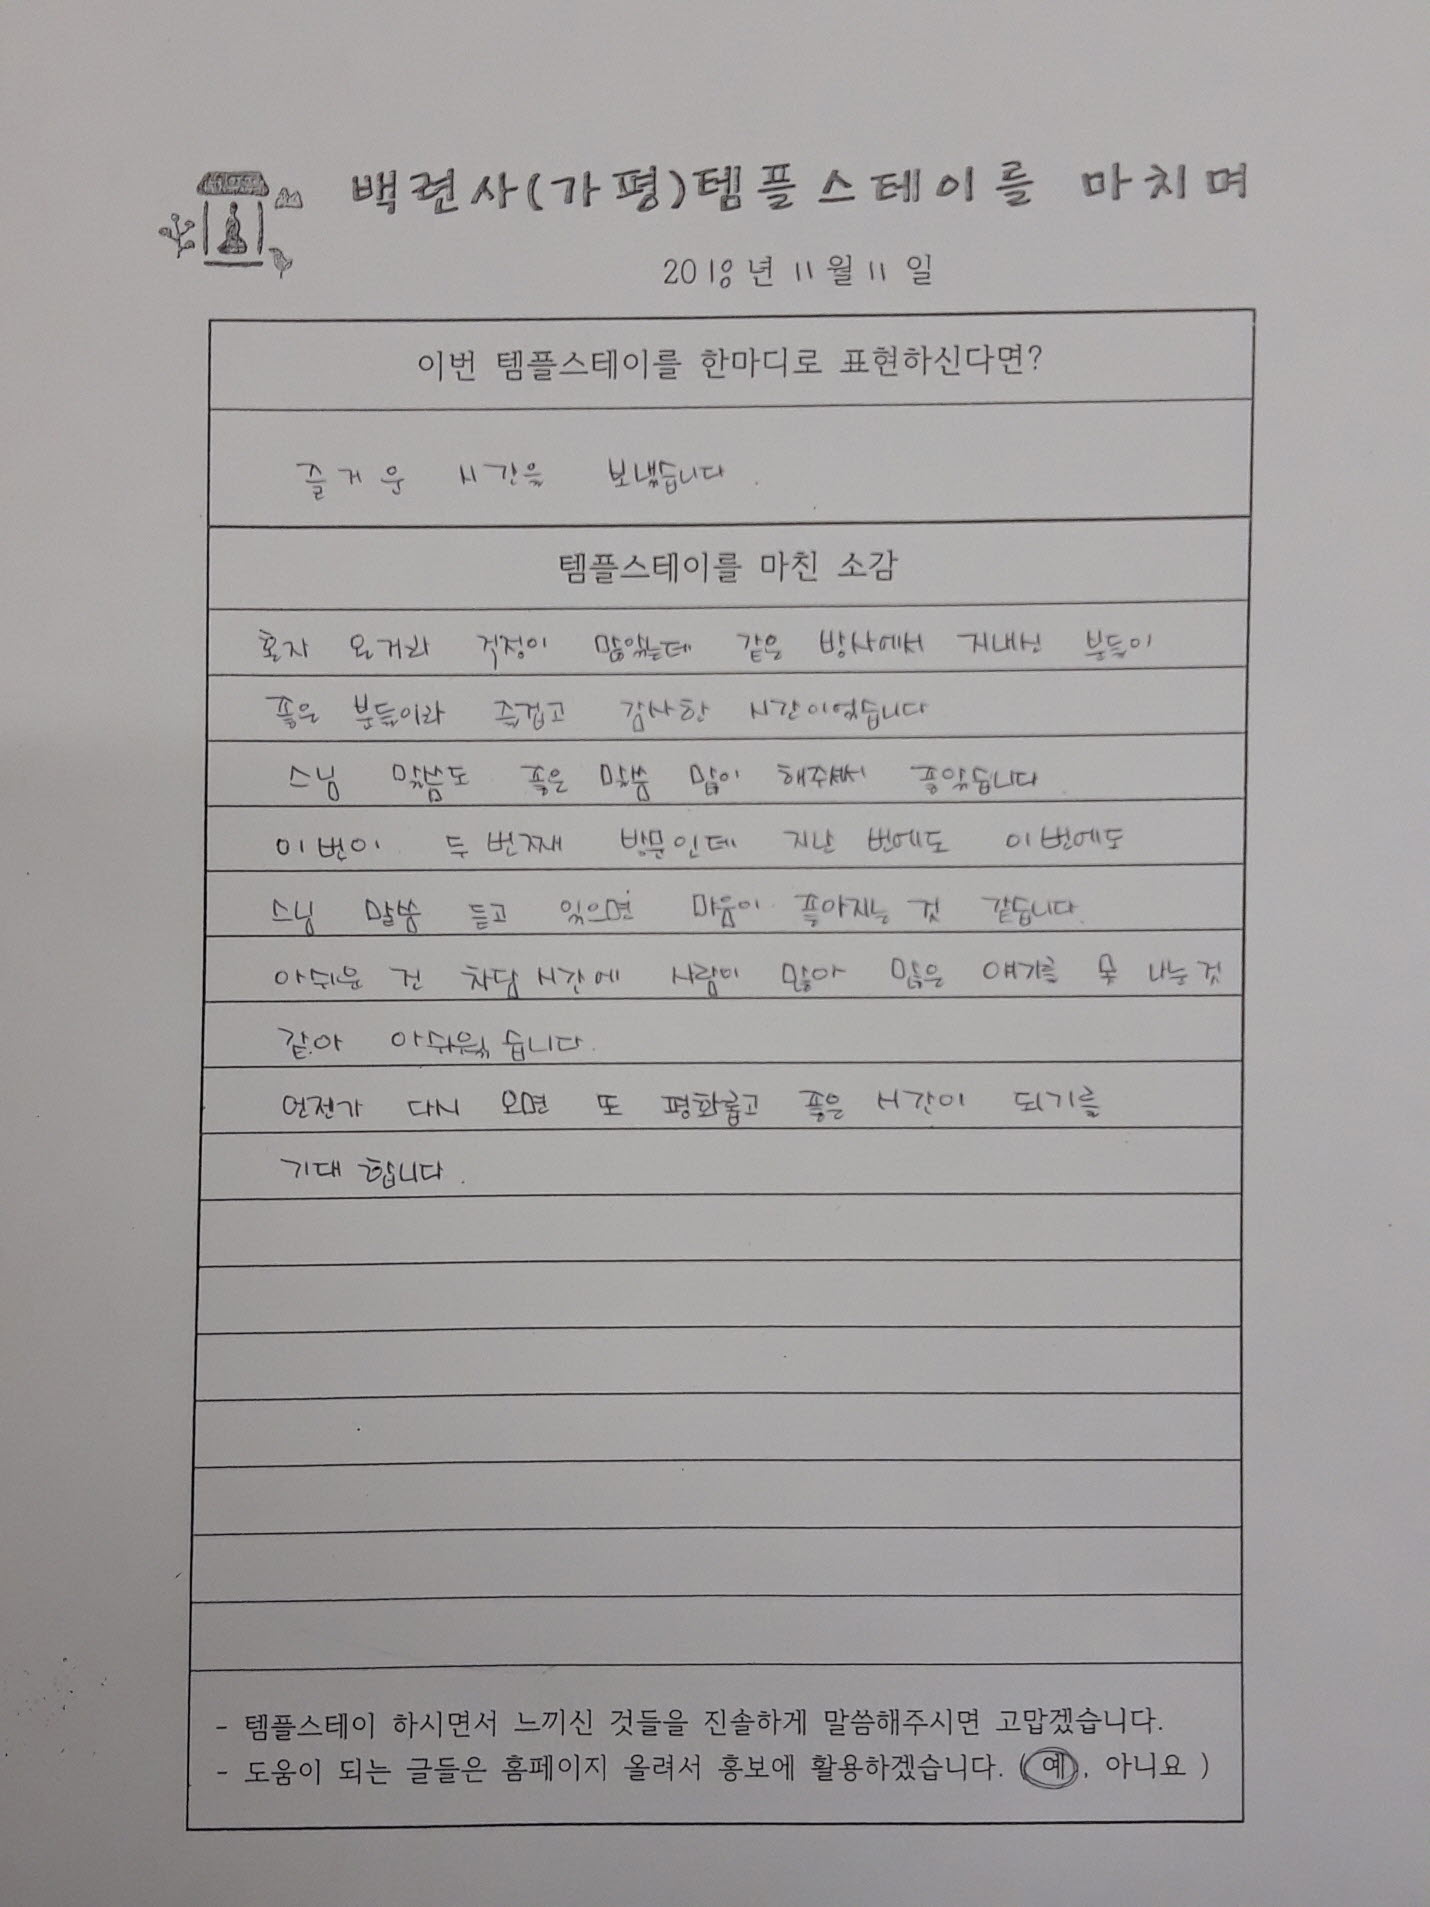 백련사(가평)템플스테이를 마치며
2018년 11월 11일
이번 템플스테이를 한마디로 표현하신다면?
즐거운 시간을 보냈습니다.
템플스테이를 마친 소감
혼자 온거라 걱정이 많았는데 같은 방사에서 지내신 분들이
좋은 분들이라 즐겁고 감사한 시간이었습니다
스님 말씀도 좋은 말씀 많이 해주셔서 좋았습니다
이번이 두번째 방문인데 지난 번에도 이번에도
스님 말씀 듣고 있으면 마음이 좋아지는 것 같습니다.
아쉬운 건 차담시간에 사람이 많아 많은 얘기를 못 나눈것
같아 아쉬웠습니다.
언젠가 다시 오면 또 평화롭고 좋은 시간이 되기를
기대합니다.
- 템플스테이 하시면서 느끼신 것들을 진솔하게 말씀해주시면 고맙겠습니다.
- 도움이 되는 글들은 홈페이지 올려서 홍보에 활용하겠습니다. ( 예, 아니요 )